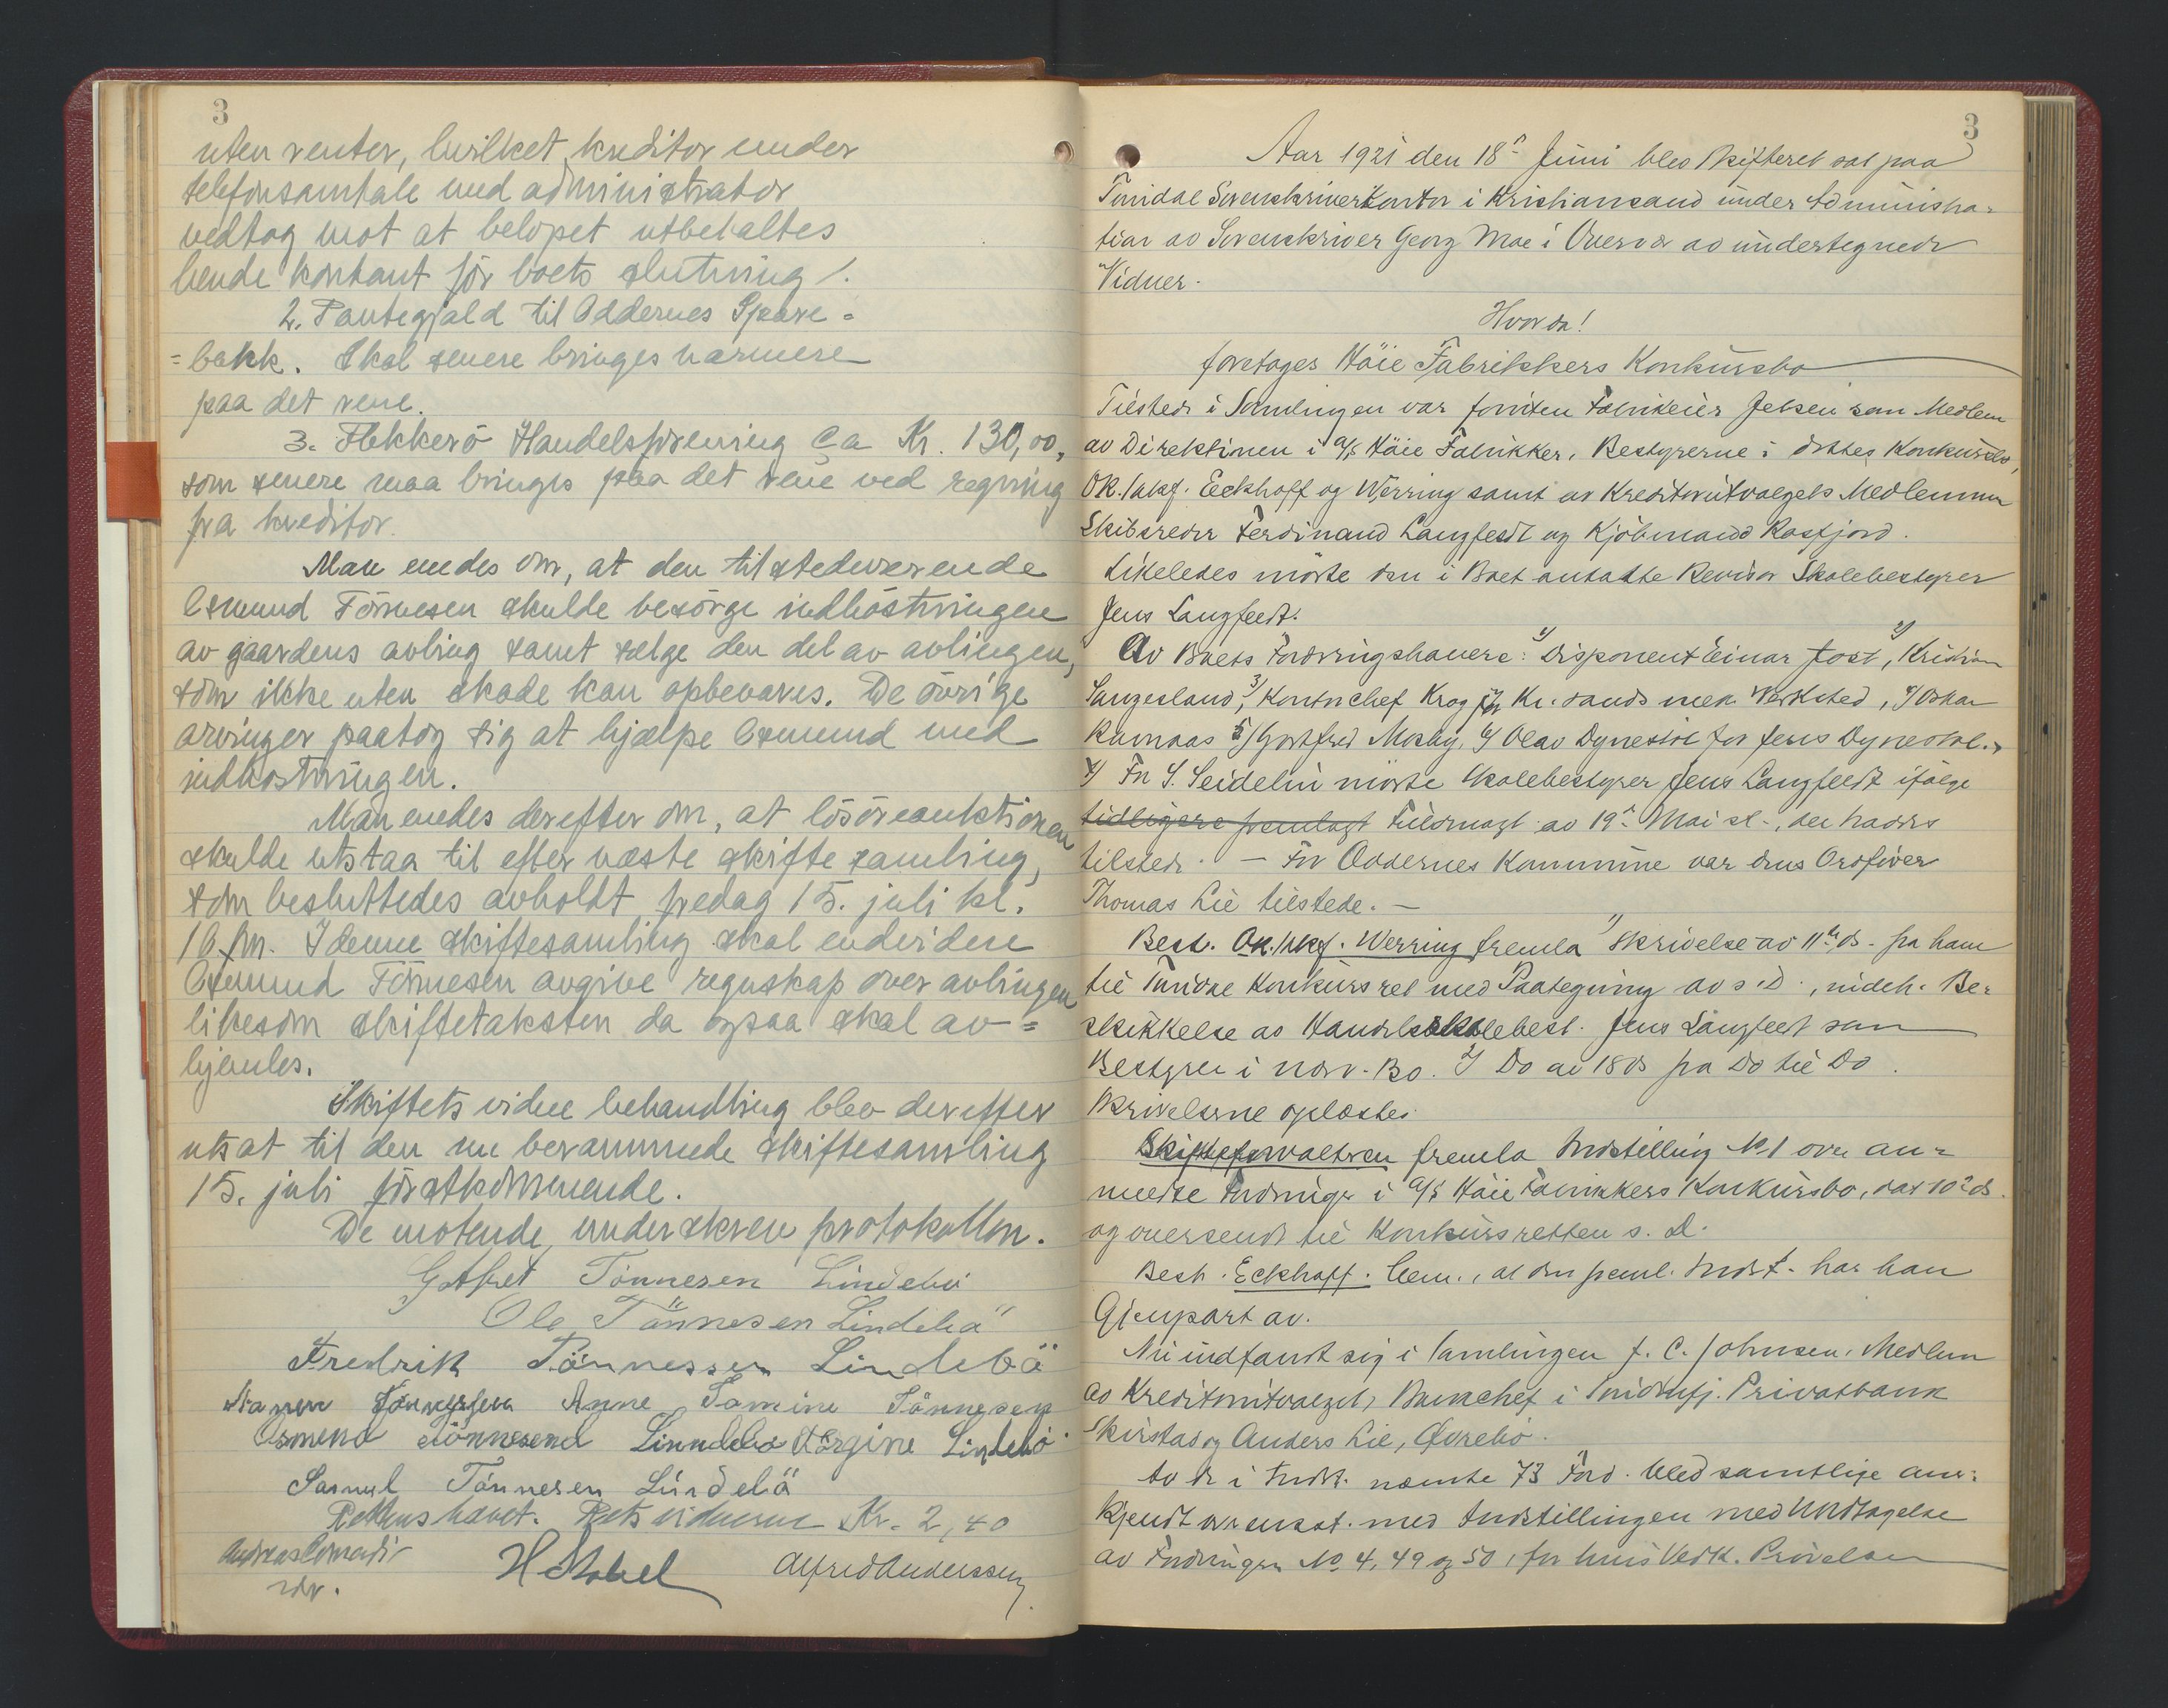 3
uten renter, hvilket kreditor under
telefonsamtale med administrator
vedtog mot at beløpet utbetaltes
hende kontant før boets slutning /.
2. Pantegjæld til Oddernes Spare=
=bank. Skal senere bringes nærmere
paa det rene.
3. Flekkerö Handelsforening Ca Kr. 130,00,
som senere maa bringes paa det rene ved regning
fra kreditor.
Man enedes om, at den tilstedeværende
Osmund Tönnesen skulde besörge indhöstningen
av gaardens avling samt sælge den del av avlingen,
som ikke uten skade kan opbevares. De övrige
arvinger paatog sig at hjælpe Osmund med
indhöstningen.
Man enedes derefter om, at lösöreauktionen
skulde utstaa til efter næste skiftesamling,
som besluttedes avholdt fredag 15. juli kl.
10 fm. I denne skiftesamling skal endvidere
Osmund Tönnesen avgive regnskap over avlingen
likesom skiftetaksten da ogsaa skal av=
hjemles.
Skiftets videre behandling blev derefter
utsat til den nu berammede skiftesamling
15. juli förstkommende.
De mötende underskrev protokollen.
Gotfret Tönnesen Lindebö
Ole Tönnesen Lindebö
Fredrik Tönnessen Lindebö
Tönnessen Anne Tomine Tönnesen
Osmund Tönnesend Linndebö Jörgine Lindebö
Samuel Tönnesen Lindebö
Retten hævet. Retsvidnerne Kr. 2,40
H Stabel Alfred Anderssen
3
Aar 1921 den 18de Juni blev Skifteret sat paa
Torridal Sorenskriverkontor i Kristiansand under Administra-
tion av Sorenskriver Georg Moe i Overvær av undertegnede
Vidner.
Hvorda!
foretages Höie Fabrikkers Konkursbo
Tilstede i Samlingen var foruten Fabrikeier Jebsen som Medlem
av Direktionen i A/S Höie Fabrikker, Bestyrerne i dettes Konkursbo,
O.R.sakf. Eckhoff og Werring samt av Kreditorutvalgets Medlemmer
Skibsreder Ferdinand Langfeldt og Kjöbmand Rosfjord.
Likeledes mötte den i Boet antatte Revisor Skolebestyrer
Jens Langfeldt.
Av Boets Fordringshavere: 1/ Disponent Einar Jost, 2/ Kristian
Langesland, 3/ Kontorchef Krog for Kr.sands mek. Verksted, 4/ Oskar
Ramaas 5/ Gottfred Mosby, 6/ Olav Dynestöl for Jens Dynestöl.
7/ For S. Seidelin mötte Skolebestyrer Jens Langfeldt ifölge
tidligere fremlagt Fuldmagt av 19de Mai sl., der havdes
tilstede. — For Oddernes Kommune var dens Ordförer
Thomas Lie tilstede. —
Best. O.R.sakf. Werring fremla 1/ Skrivelse av 11te ds. fra ham
til Torridal Konkursret med Paategning av s.D., indeh. Be-
skikkelse av Handelsskolebest. Jens Langfeldt som
Bestyrer i nærv. Bo. 2/ Do av 18 ds fra Do til Do.
Skrivelserne oplæstes.
Skifteforvalteren fremla Indstilling No 1 over an=
meldte Fordringer i A/S Höie Fabrikkers Konkursbo, dat 10de ds.
og oversendt til Konkursretten s. D.
Best. Eckhoff. bem., at den freml. Indst. har han
Gjenpart av.
Nu indfandt sig i Samlingen J. C. Johnsen, Medlem
av Kreditorutvalget, Bankchef i Privatbank
Skirstad og Anders Lie, Øvrebö.
Av de i Indst. nævnte 73 Ford. blev samtlige aner-
kjendt overensst. med Indstillingen med Undtagelse
av Fordringer No 4, 49 og 50, for hvis Vedk. Prövelsen